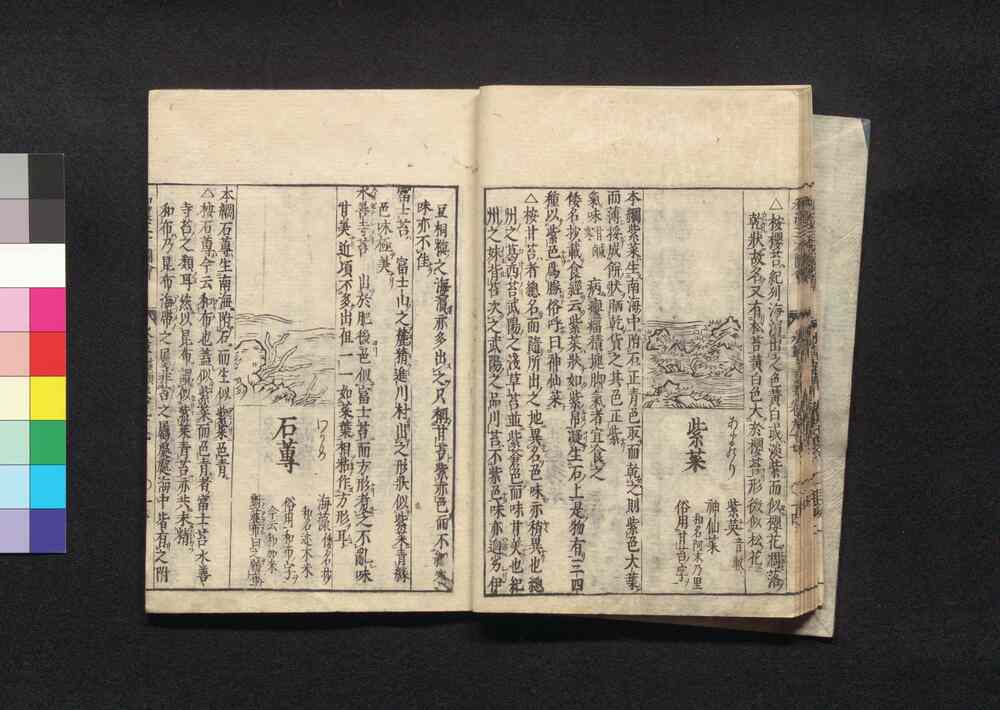 △按櫻苔紀州海濱出之色青白或淡紫而似櫻花凋落
乾狀故名又有松苔黃白色大於櫻苔形微似松花
紫菜
あまのり
紫英
神仙菜
和名阿末乃里
俗用甘苔字
本綱紫菜生南海中附石正青色取而乾之則紫色大葉
而薄挼成餅狀晒乾貨之其色正紫
氣味甘鹹 病癭瘤積塊脚氣者宜食之
倭名抄載食經云紫菜狀如紫帛凝生石上是物有三四
種以紫色爲勝俗呼曰神仙菜
△按甘苔者總名而隨所出之地異名色味亦稍異也總
州之葛西苔武陽之淺草苔並紫蒼色而味甘美也紀
州之妹背苔次之武陽之品川苔不紫色味亦迫劣伊
豆相模之海濱亦多出之凡稱甘苔紫赤色而不
味亦不佳
富士苔 富士山之麓精進川村出之形狀似紫菜青綠
色味極美
水善寺苔 出於肥後色似富士苔而方形者之不亂味
甘美近頃不多出但一一如菜葉相粘作方形耳
石蓴
わかめ
海藻
俗用和布字
本綱石蓴生南海附石而生似紫菜色青
△按石蓴今云和布也蓋似紫菜而色青者富士苔水善
寺苔之類耳然以昆布謂似紫菜青苔亦共未精
和布乃昆布海帶之屬非苔之屬處處海中皆有之附